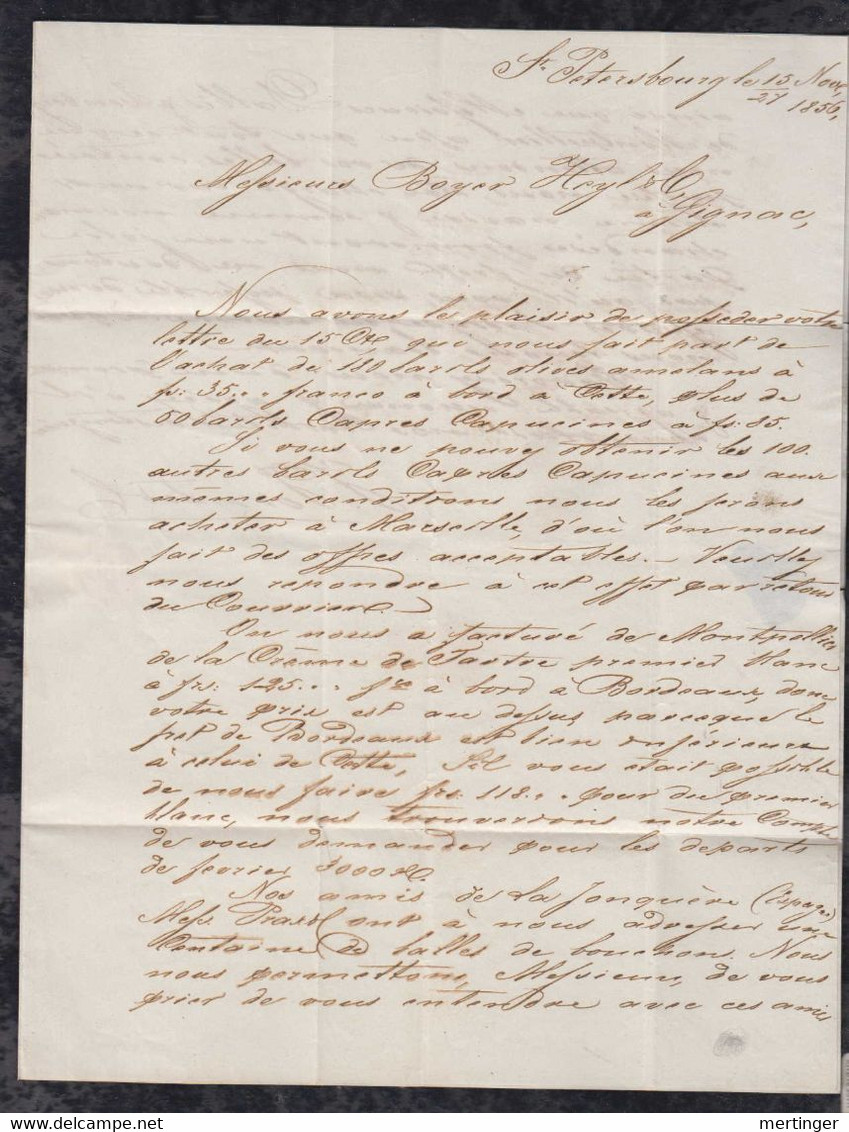 St. Petersbourg le 15/27 Nov.
1856,
Messieurs Boyer Heyl & C.
à Gignac,
Nous avons le plaisir de posseder votre
lettre du 15 Ct. qui nous fait part de
l'achat de 180 barils olives amelans à
fs: 35. franco à bord à Cette, plus de
50 barils Capres Capucines à fs: 85.
Si vous ne pouvez obtenir les 100
autres barils Capres Capucines aux
mêmes conditions nous les ferons
acheter à Marseille, d'où l'on nous
fait des offres acceptables. – Veuillez
nous repondre à cet effet par retour
du Courrier.
On nous a facturé de Montpellier
de la Crême de Tartre premier blanc
à frs: 125. fco à bord à Bordeaux, donc
votre prix est au dessus parceque le
fret de Bordeaux est bien inférieur
à celui de Cette, S'il vous etait possible
de nous faire frs. 118. pour du premier
blanc, nous trouverions notre Compte
de vous demander pour les departs
de fevrier
Nos amis de La Jonquère (Espagne)
Mess. ont à nous adresser une
Centaine de balles de bouchons. Nous
nous permettons, Messieurs, de vous
prier de vous entendre avec ces amis
mertinger